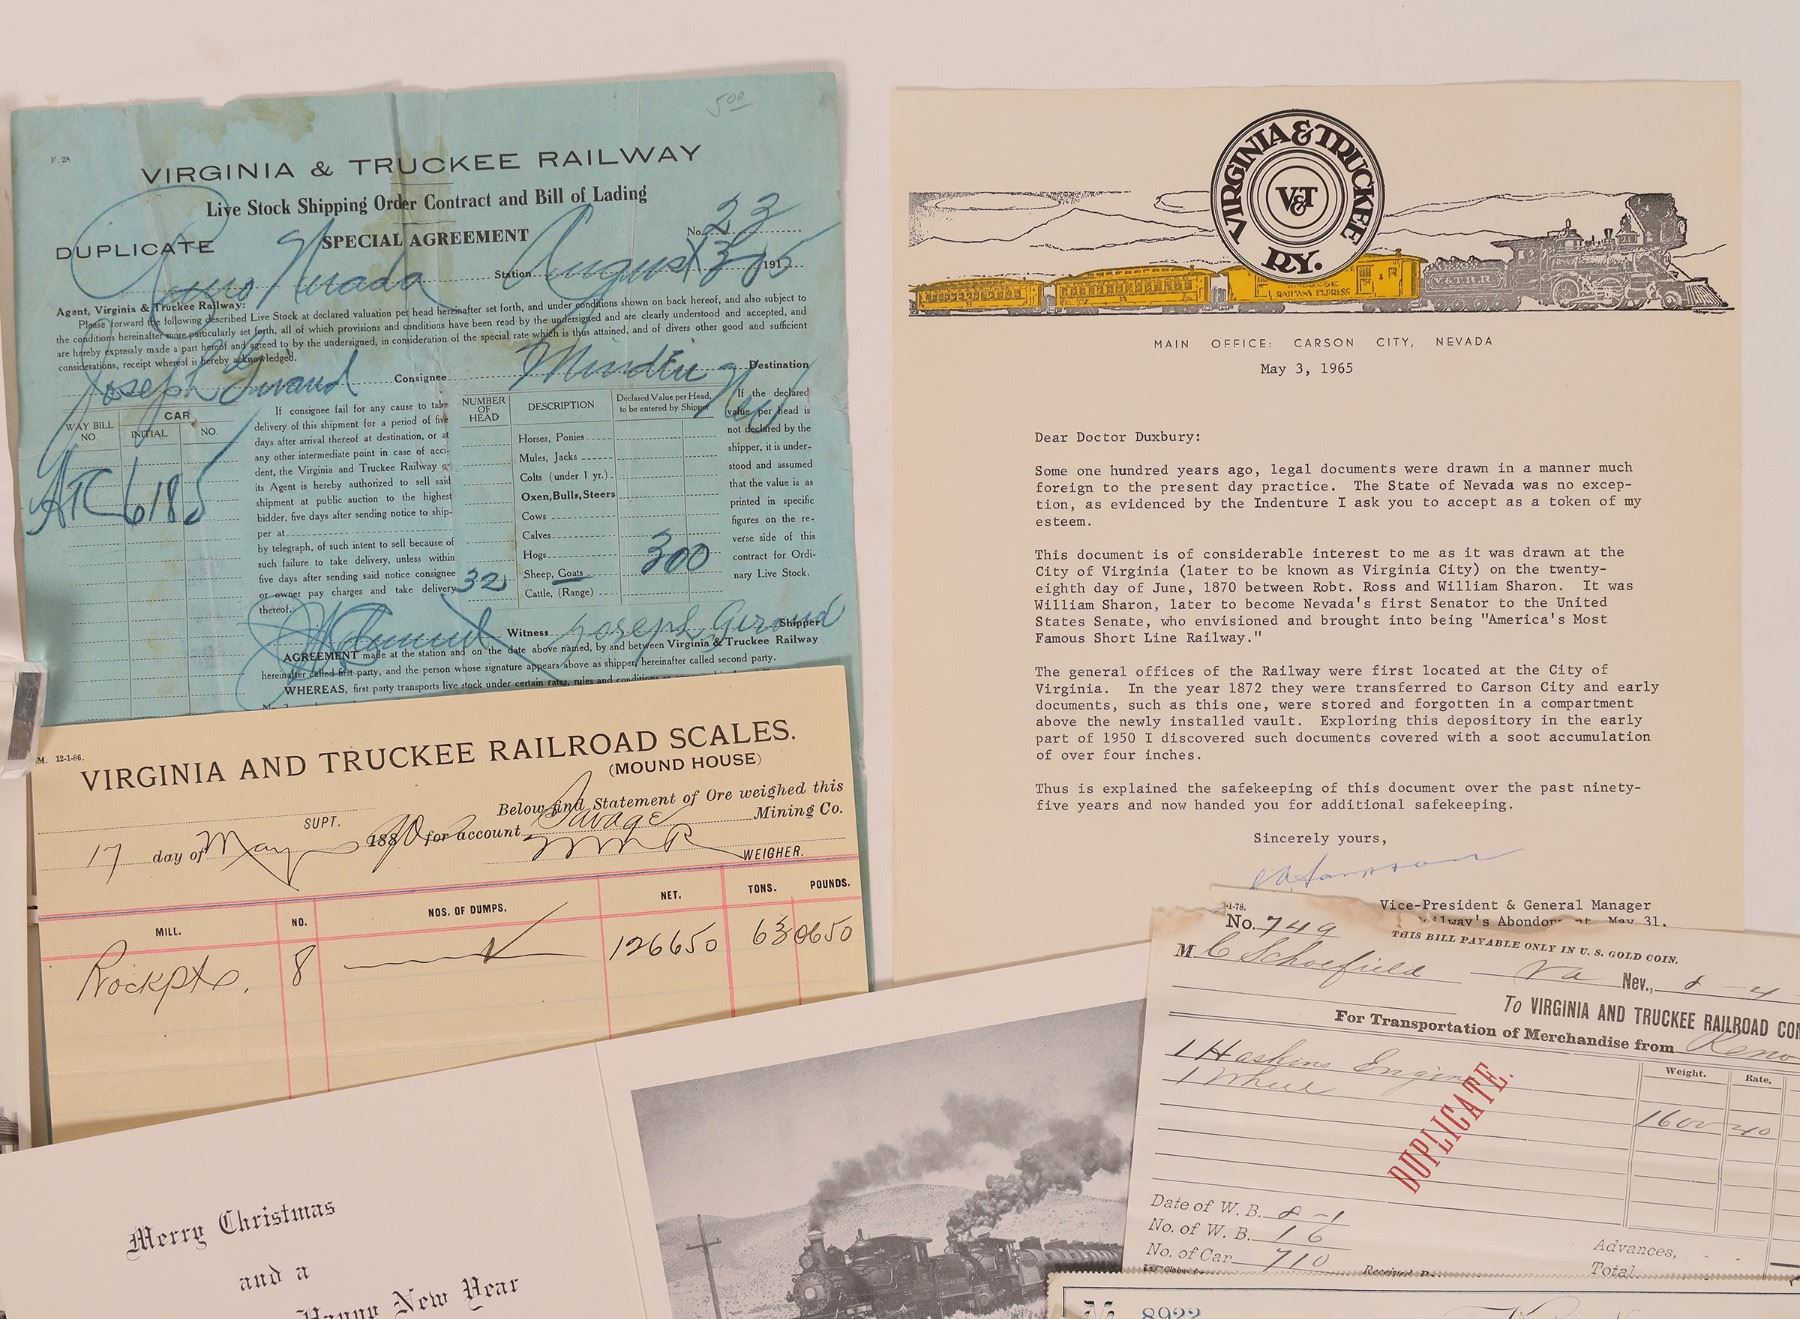 5.00
F. 28
VIRGINIA & TRUCKEE RAILWAY
Live Stock Shipping Order Contract and Bill of Lading
DUPLICATE
SPECIAL AGREEMENT
No. 23
Reno Nevada Station August 3 1915
Agent, Virginia & Truckee Railway:
Please forward the following described Live Stock at declared valuation per head hereinafter set forth, and under conditions shown on back hereof, and also subject to
the conditions hereinafter more particularly set forth, all of which provisions and conditions have been read by the undersigned and are clearly understood and accepted, and
are hereby expressly made a part hereof and agreed to by the undersigned, in consideration of the special rate which is thus attained, and of divers other good and sufficient
considerations, receipt whereof is hereby acknowledged.
Joseph Giraud Consignee Minden Nev Destination
CAR
WAY BILL NO.
INITIAL
NO.
ATC 6185
If consignee fail for any cause to take
delivery of this shipment for a period of five
days after arrival thereof at destination, or at
any other intermediate point in case of acci-
dent, the Virginia and Truckee Railway or
its Agent is hereby authorized to sell said
shipment at public auction to the highest
bidder, five days after sending notice to ship-
per at
by telegraph, of such intent to sell because of
such failure to take delivery, unless within
five days after sending said notice consignee
or owner pay charges and take delivery
thereof.
NUMBER OF HEAD
DESCRIPTION
Declared Value per Head, to be entered by Shipper
Horses, Ponies
Mules, Jacks
Colts (under 1 yr.)
Oxen, Bulls, Steers
Cows
Calves
Hogs
32 Sheep, Goats 300
Cattle, (Range)
If the declared
value per head is
not declared by the
shipper, it is under-
stood and assumed
that the value is as
printed in specific
figures on the re-
verse side of this
contract for Ordi-
nary Live Stock.
Witness Joseph Giraud Shipper
AGREEMENT made at the station and on the date above named, by and between Virginia & Truckee Railway
hereinafter called first party, and the person whose signature appears above as shipper, hereinafter called second party.
WHEREAS, first party transports live stock under certain rates, rules and conditions
M. 12-1-86.
VIRGINIA AND TRUCKEE RAILROAD SCALES.
(MOUND HOUSE)
SUPT.
Below find Statement of Ore weighed this
17 day of May 1890 for account Savage Mining Co.
WEIGHER.
MILL. NO. NOS. OF DUMPS. NET. TONS. POUNDS.
Rockpt. 8 126650 63 0650
Merry Christmas
and a
Happy New Year
VIRGINIA & TRUCKEE RY.
V&T
V&T.R.R
RAILWAY EXPRESS
MAIN OFFICE: CARSON CITY, NEVADA
May 3, 1965
Dear Doctor Duxbury:
Some one hundred years ago, legal documents were drawn in a manner much
foreign to the present day practice. The State of Nevada was no excep-
tion, as evidenced by the Indenture I ask you to accept as a token of my
esteem.
This document is of considerable interest to me as it was drawn at the
City of Virginia (later to be known as Virginia City) on the twenty-
eighth day of June, 1870 between Robt. Ross and William Sharon. It was
William Sharon, later to become Nevada's first Senator to the United
States Senate, who envisioned and brought into being "America's Most
Famous Short Line Railway."
The general offices of the Railway were first located at the City of
Virginia. In the year 1872 they were transferred to Carson City and early
documents, such as this one, were stored and forgotten in a compartment
above the newly installed vault. Exploring this depository in the early
part of 1950 I discovered such documents covered with a soot accumulation
of over four inches.
Thus is explained the safekeeping of this document over the past ninety-
five years and now handed you for additional safekeeping.
Sincerely yours,
Vice-President & General Manager
Railway's Abondonment May 31.
1-78.
No. 749
THIS BILL PAYABLE ONLY IN U. S. GOLD COIN.
M C Schoefield Va Nev., 8-4
To VIRGINIA AND TRUCKEE RAILROAD CO
For Transportation of Merchandise from Reno
Weight. Rate.
1 Haskins Engine
1 Wheel
1600 40
DUPLICATE.
Date of W. B. 8-1
No. of W. B. 16
No. of Car 710
Advances,
Total
No 8922